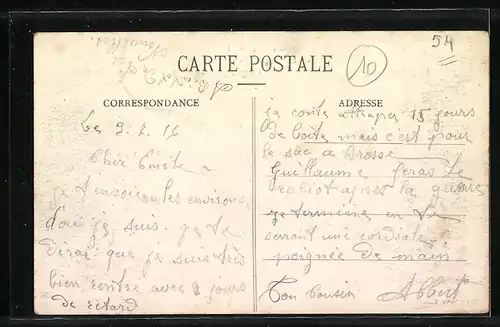 54
CARTE POSTALE
10
CORRESPONDANCE
ADRESSE
Le 9. 7. 16
Cher Emile
je t'envoie les environs
d'ou je suis. je te
dirai que je suis très
bien rentré avec 2 jours
de retard
je conte attraper 15 jours
de boite mais c'est pour
le sac a Brosse
Guillaume feras le
rabiot apres la guerre
je termine en te
serrant une cordiale
poignée de main
Ton Cousin Albert